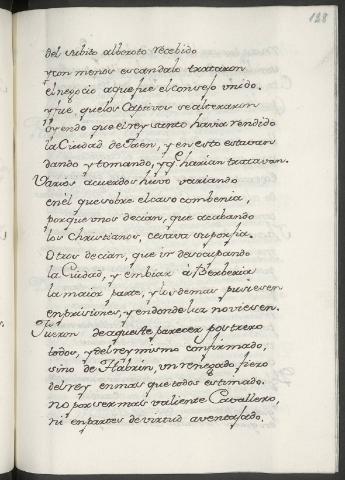 128
del subito alboroto recebido
y con menos escandalo trataron
el negocio a que fue el consejo vnido.
y fue que los Captivos se alteraron
oyendo que el rey santo havia rendido
la Ciudad de Jaen, y en esto estavan
dando y tomando, y q.e harian tratavan.
Varios acuerdos huvo variando
en él que sobre el caso combenia,
porque vnos decian, que acabando
los Christianos, cesava su porfia.
Otros decian, que ir desocupando
la Ciudad, y embiar á Berberia
la maior parte, y los demas pusiesen
en prisiones, y en donde luz no viesen.
Fueron de aqueste parecer postrero
todos, y del rey mismo confirmado,
sino de Habrin, vn renegado fiero
del rey en mas que todos estimado.
no por ser mas valiente Cavallero,
ni en partes de virtud aventajado,